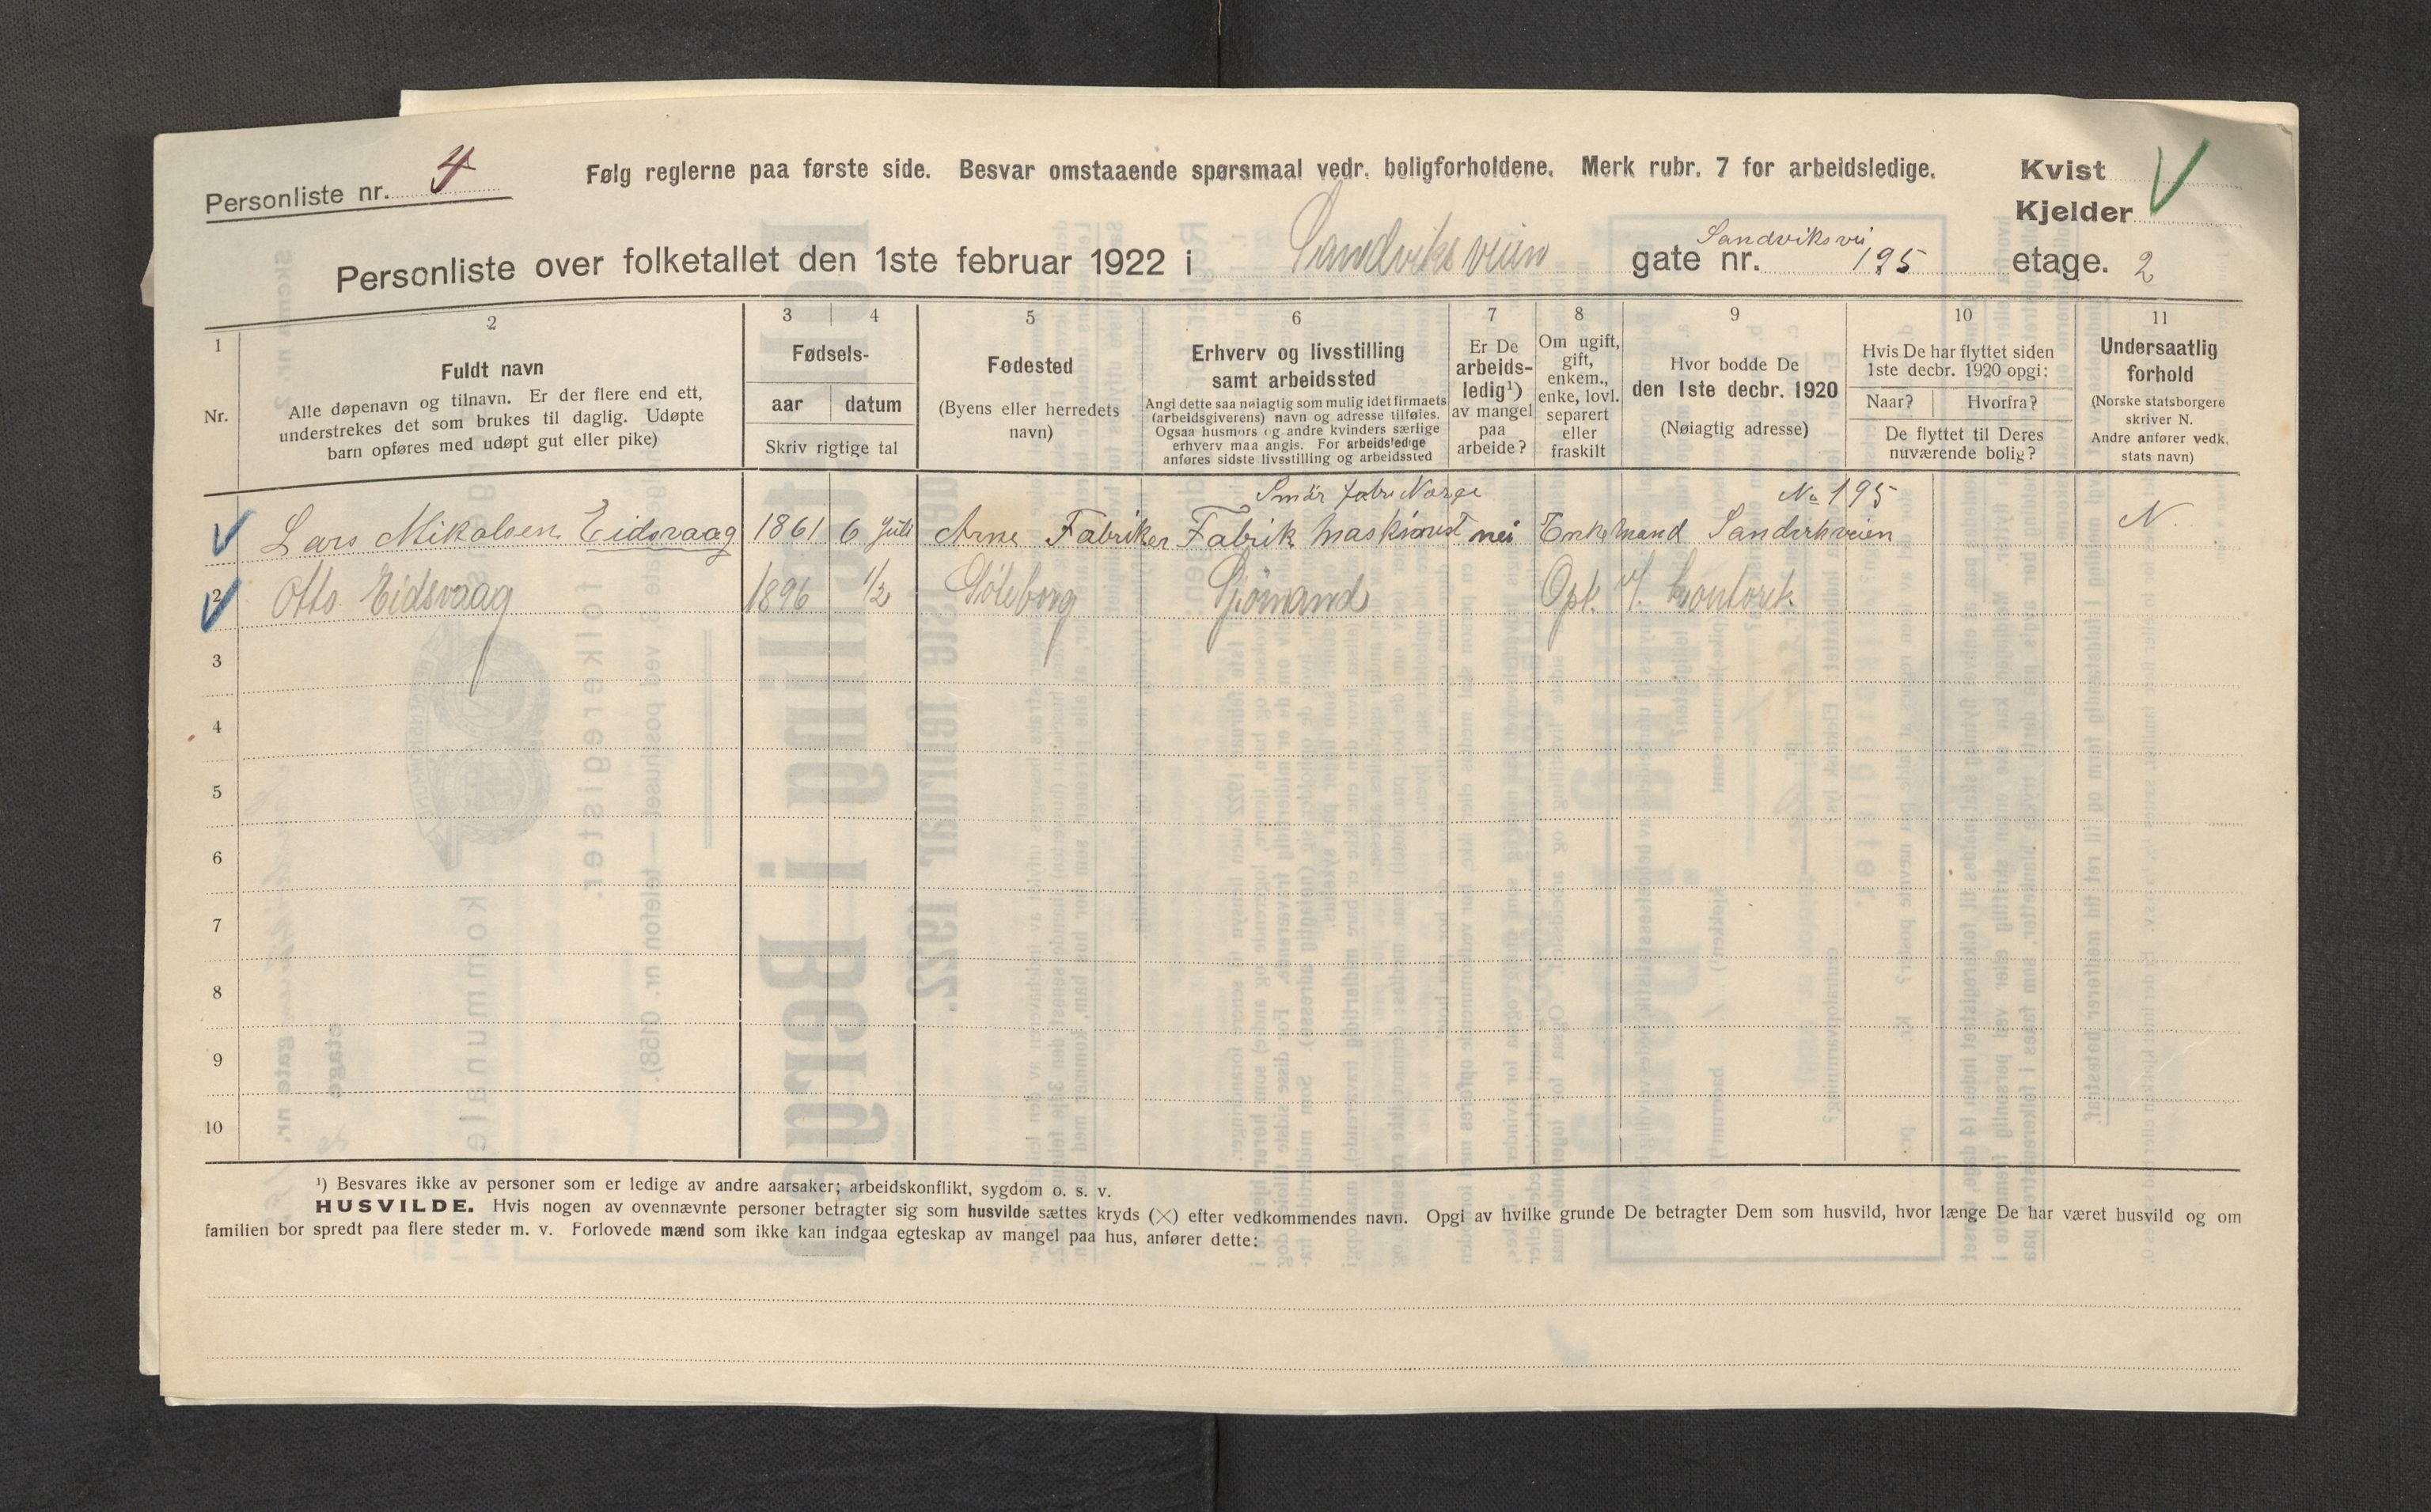 Personliste nr. 4
Følg reglerne paa første side. Besvar omstaaende spørsmaal vedr. boligforholdene. Merk rubr. 7 for arbeidsledige.
Kvist
Kjelder
Personliste over folketallet den 1ste februar 1922 i Sandviksveien gate nr. Sandviksvei 195 etage. 2
1
Nr.
2
Fuldt navn
Alle døpenavn og tilnavn. Er der flere end ett,
understrekes det som brukes til daglig. Udøpte
barn opføres med udøpt gut eller pike)
3 4
Fødsels-
aar datum
Skriv rigtige tal
5
Fødested
(Byens eller herredets
navn)
6
Erhverv og livsstilling
samt arbeidssted
Angi dette saa nøiagtig som mulig idet firmaets
(arbeidsgiverens) navn og adresse tilføies.
Ogsaa husmors og andre kvinders særlige
erhverv maa angis. For arbeidsledige
anføres sidste livsstilling og arbeidssted
7
Er De
arbeids-
ledig¹)
av mangel
paa
arbeide?
8
Om ugift,
gift,
enkem.,
enke, lovl.
separert
eller
fraskilt
9
Hvor bodde De
den 1ste decbr. 1920
(Nøiagtig adresse)
10
Hvis De har flyttet siden
1ste decbr. 1920 opgi:
Naar? Hvorfra?
De flyttet til Deres
nuværende bolig?
11
Undersaatlig
forhold
(Norske statsborgere
skriver N.
Andre anfører vedk.
stats navn)
Smör fabr Norge No 195
Lars Mikalsen Eidsvaag 1861 6 Juli Arne Fabriker Fabrik Maskinist nei Enkemand N.
2 Otto Eidsvaag 1896 1/2 Sjömand Opl. v/
3
4
5
6
7
8
9
10
¹) Besvares ikke av personer som er ledige av andre aarsaker; arbeidskonflikt, sygdom o. s. v.
HUSVILDE. Hvis nogen av ovennævnte personer betragter sig som husvilde sættes kryds (×) efter vedkommendes navn. Opgi av hvilke grunde De betragter Dem som husvild, hvor længe De har været husvild og om
familien bor spredt paa flere steder m. v. Forlovede mænd som ikke kan indgaa egteskap av mangel paa hus, anfører dette: